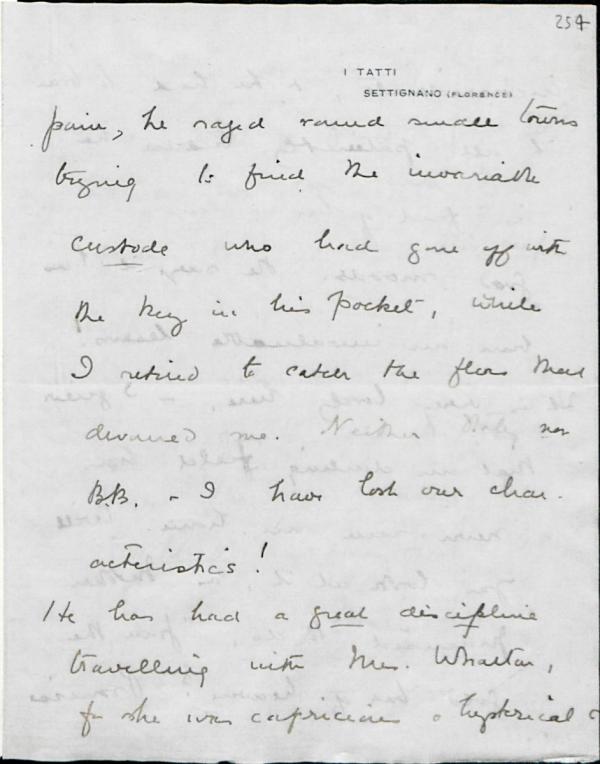 254
I TATTI
SETTIGNANO (FLORENCE)
pain, he raged round small towns
trying to find the invariable
custode who had gone off with
the key in his pocket, while
I retired to catch the fleas that
devoured me. Neither Italy nor
B.B. & I have lost our char-
acteristics!
He has had a great discipline
travelling with Mrs. Wharton,
for she was capricious & hysterical &